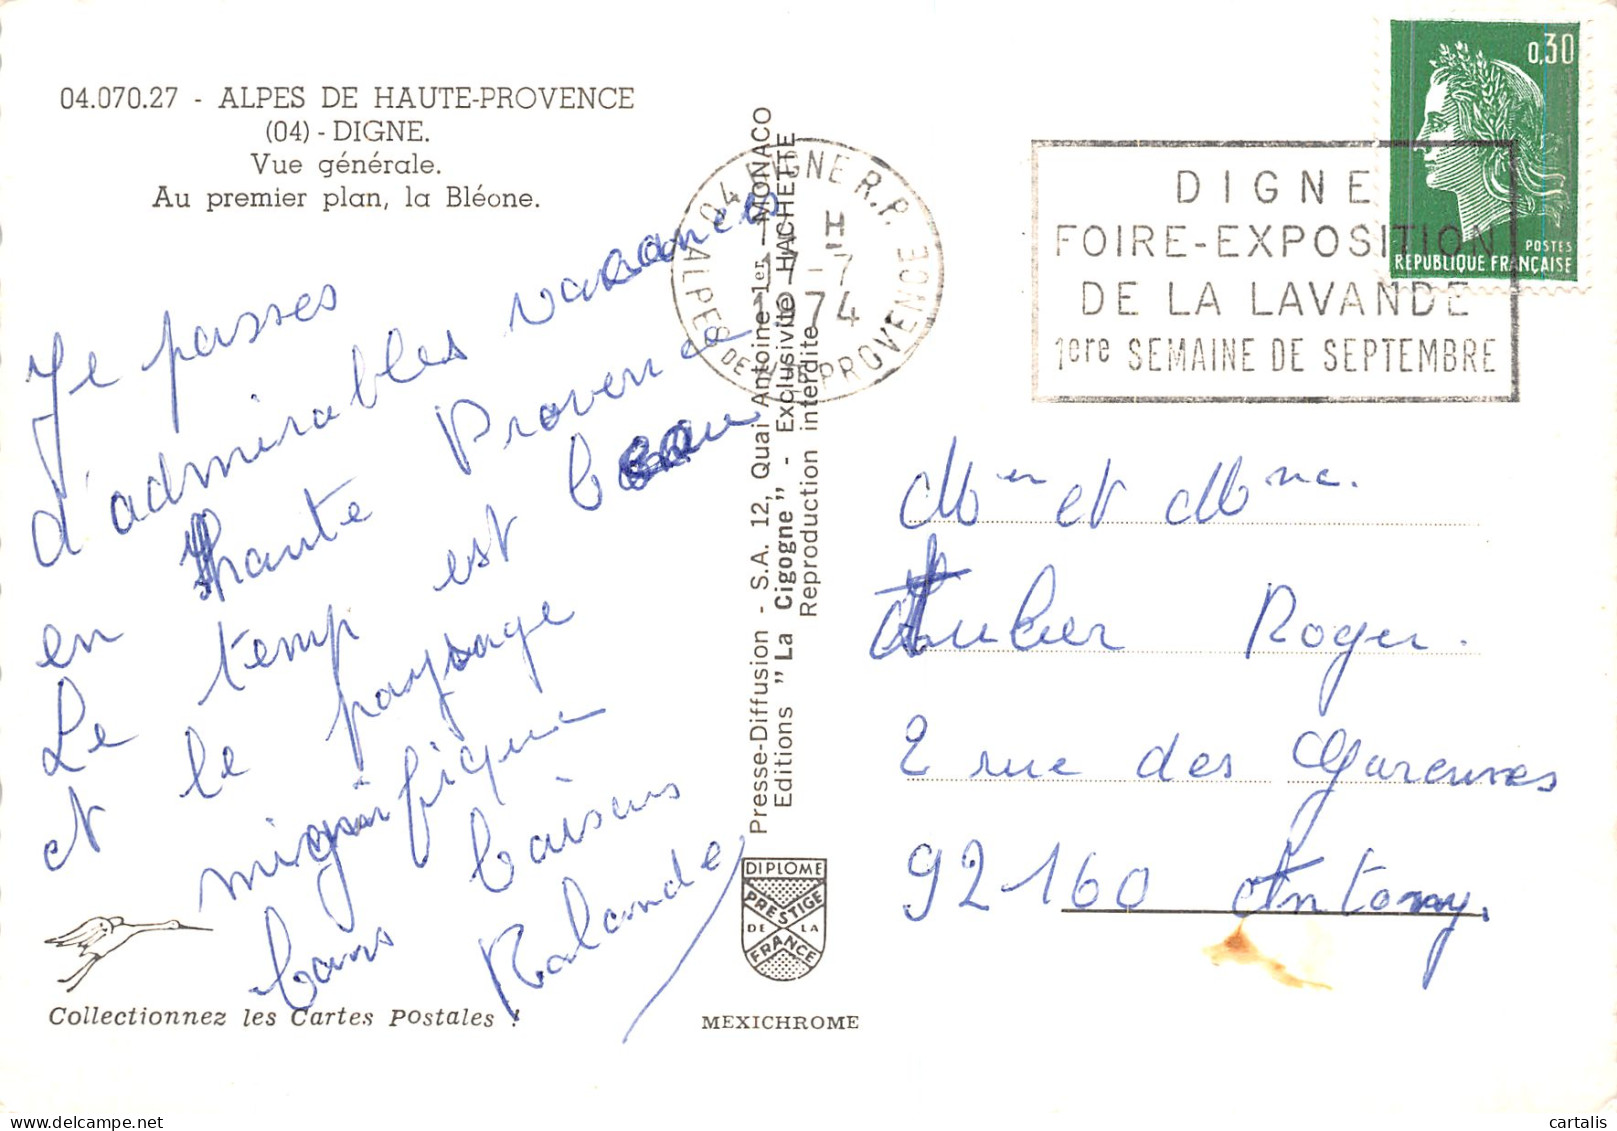 04.070.27 - ALPES DE HAUTE-PROVENCE
(04) - DIGNE.
Vue générale.
Au premier plan, la Bléone.
Je passes
d'admirables vacances
en haute Provence
Le temp est beau
et le paysage
magnifique
bons baisers
Rolande
Collectionnez les Cartes Postales !
Presse-Diffusion - S.A. 12, Quai Antoine 1er - MONACO
Editions "La Cigogne" - Exclusivité HACHETTE
Reproduction interdite
DIPLOME
PRESTIGE
DE LA
FRANCE
MEXICHROME
04 DIGNE R.P.
H
17-7
1974
ALPES DE HTE PROVENCE
DIGNE
FOIRE-EXPOSITION
DE LA LAVANDE
1ere SEMAINE DE SEPTEMBRE
0,30
POSTES
RÉPUBLIQUE FRANÇAISE
Mr et Mme.
Aubier Roger.
2 rue des Garennes
92160 Antony.
cartalis
www.delcampe.net